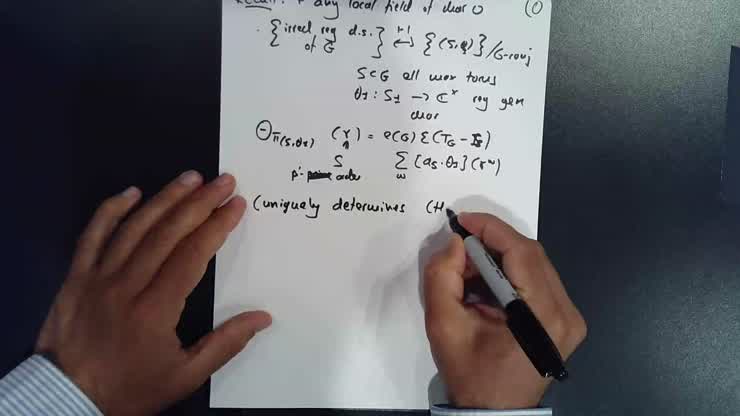 Recall: F any local field of char 0 (1)
· {irred reg d.s. of G} ↔ 1-1 {(S,θ)}/G-conj
S⊂G ell max torus
θ± : S± → ℂ^x reg gen
char
Θπ(S,θ±) (γ) = e(G) ε(T_G - T_S)
S
p'- order
Σ_w [a_S·θ±](γ^w)
(uniquely determines (H